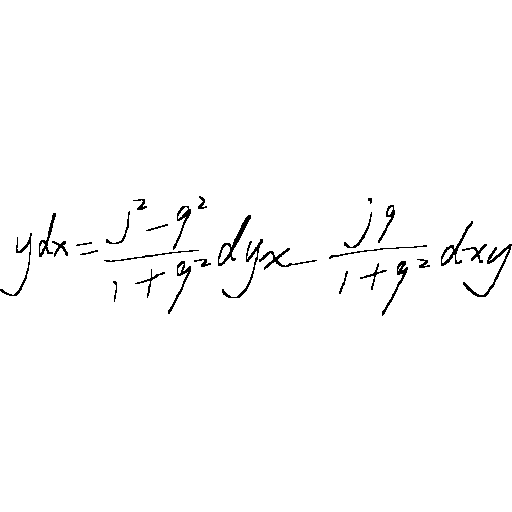 $ydx = \frac{j^2 - q^2}{1 + q^2} dyx - \frac{jq}{1 + q^2} dxy$